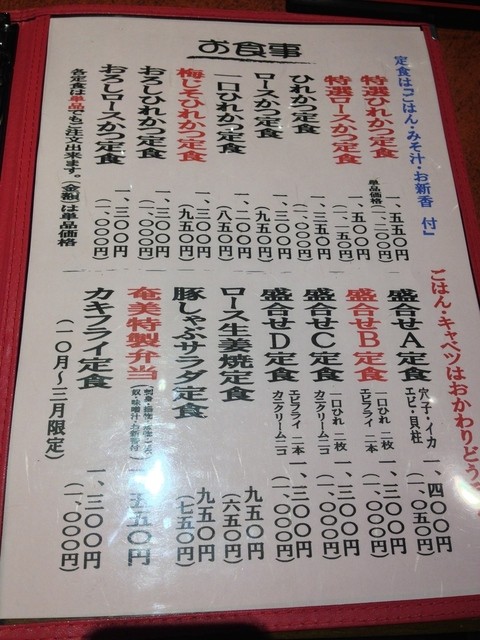 お食事
定食は「ごはん・みそ汁・お新香 付」
特選ひれかつ定食 一、五五〇円
単品価格 (一、二〇〇円)
特選ロースかつ定食 一、五〇〇円
(一、一五〇円)
ひれかつ定食 一、三五〇円
(一、〇〇〇円)
ロースかつ定食 一、三〇〇円
(九五〇円)
一口ひれかつ定食 一、二〇〇円
(八五〇円)
梅じそひれかつ定食 一、三〇〇円
(九五〇円)
おろしひれかつ定食 一、三〇〇円
(一、〇〇〇円)
おろしロースかつ定食 一、三〇〇円
(一、〇〇〇円)
各定食は単品でもご注文出来ます。(金額)は単品価格
ごはん・キャベツはおかわりどう
盛合せA定食 穴子・イカ
エビ・貝柱 一、四〇〇円
(一、〇五〇円)
盛合せB定食 一口ひれ 二枚
エビフライ 二本 一、三〇〇円
(一、〇〇〇円)
盛合せC定食 一口ひれ 二枚
カニクリーム 二コ 一、三〇〇円
(一、〇〇〇円)
盛合せD定食 エビフライ 二本
カニクリーム 二コ 一、三〇〇円
(一、〇〇〇円)
ロース生姜焼定食 九五〇円
(六五〇円)
豚しゃぶサラダ定食 九五〇円
(七五〇円)
奄美特製弁当 五五〇円
カキフライ定食 一、三〇〇円
(一〇月〜三月限定) (一、〇〇〇円)